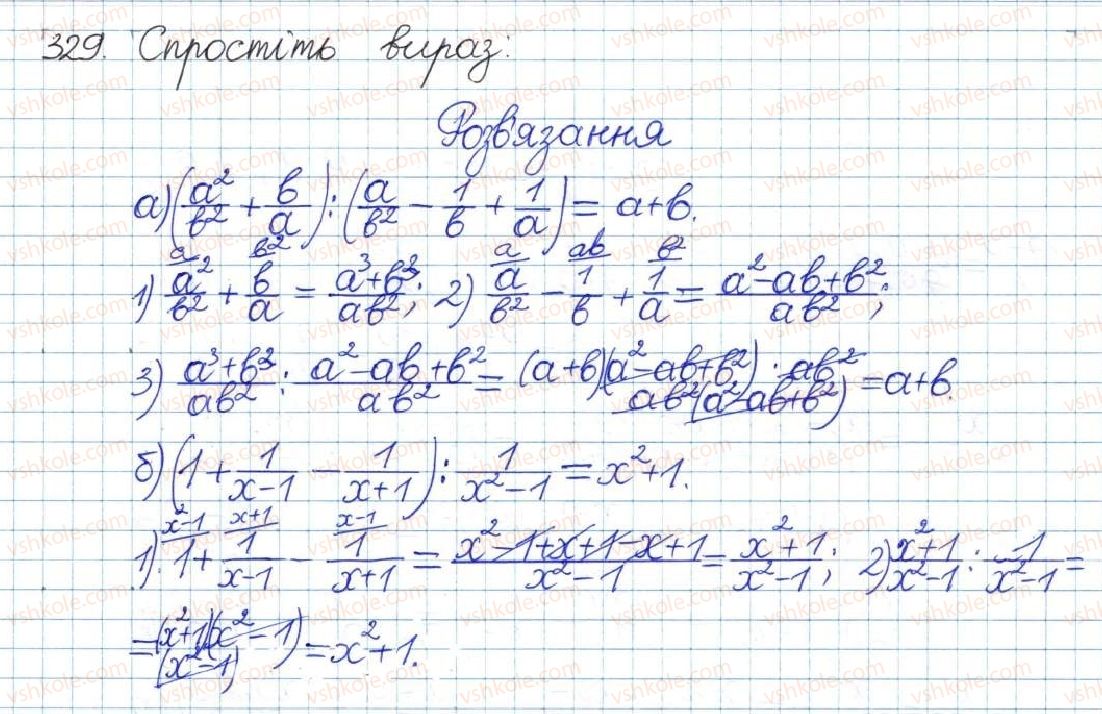 329. Спростіть вираз:
Розв'язання
а) (a²/b² + b/a) : (a/b² − 1/b + 1/a) = a+b.
1) a²/b² + b/a = (a³+b³)/(ab²); 2) a/b² − 1/b + 1/a = (a²−ab+b²)/(ab²);
3) (a³+b³)/(ab²) : (a²−ab+b²)/(ab²) = ((a+b)(a²−ab+b²)·ab²)/(ab²(a²−ab+b²)) = a+b.
б) (1 + 1/(x−1) − 1/(x+1)) : 1/(x²−1) = x²+1.
1) 1 + 1/(x−1) − 1/(x+1) = (x²−1+x+1−x+1)/(x²−1) = (x²+1)/(x²−1); 2) (x²+1)/(x²−1) : 1/(x²−1) =
= ((x²+1)(x²−1))/(x²−1) = x²+1.